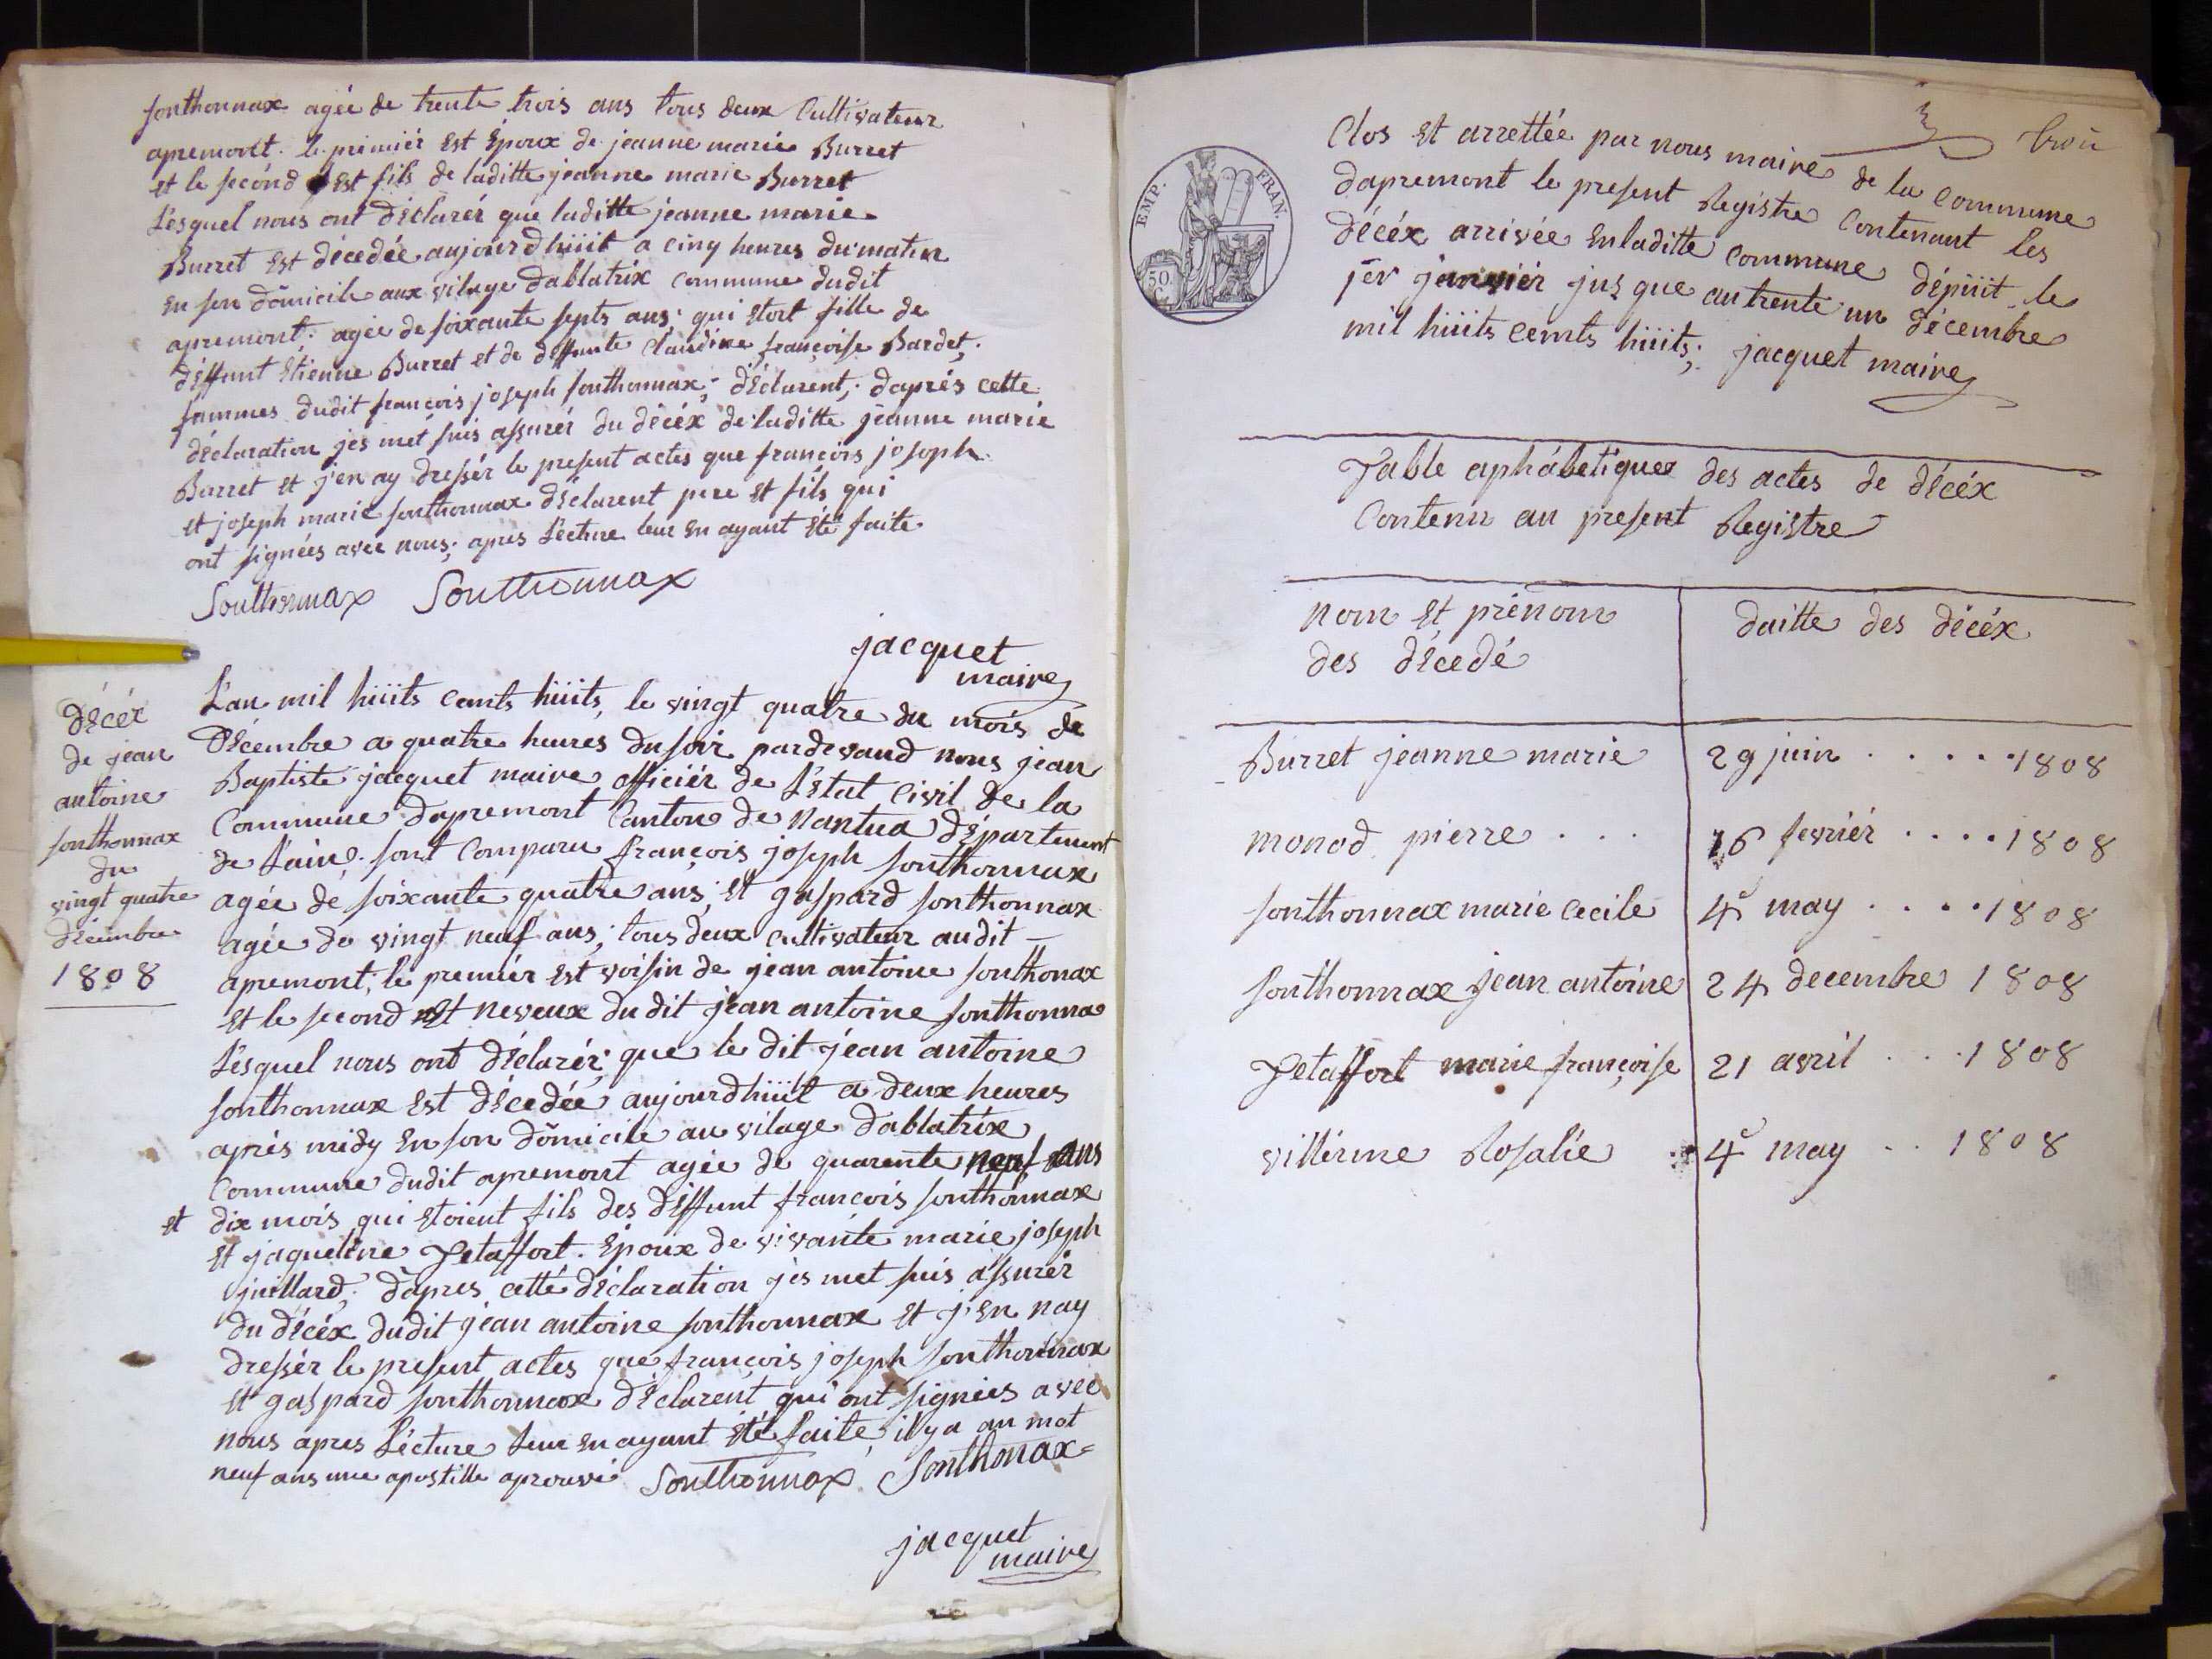 sonthonnax agée de trente trois ans tous deux Cultivateur
apremont. le premiér est époux de jeanne marie Burret
et le second est fils de laditte jeanne marie Burret
Lesquel nous ont déclarér que laditte jeanne marie
Burret est décedée aujourdhüit a cinq heures du matin
en son domicile aux vilage dablatrix commune dudit
apremont; agée de soixante septs ans; qui étoit fille de
déffunt étienne Burret et de deffunte Claudine françoise Bardet;
fammes dudit francois joseph sonthonnax; déclarent; daprés cette
déclaration jes met suis assurér du décéx de laditte jeanne marie
Burret et j'en ay dressér le present actes que francois joseph
et joseph marie sonthonnax déclarent pere et fils qui
ont signées avec nous; apres Lécture leur en ayant été faite
Sonthonnax Sonthonnax
jacquet
maire
décéx
de jean
antoine
sonthonnax
du
vingt quatre
décembre
1808
L'an mil hüits cents hüits, le vingt quatre du mois de
Décembre a quatre heures du soir pardevand nous jean
Baptiste jacquet maire officiér de L'état Civil de la
Commune dapremont Canton de Nantua département
de L'ain. sont Comparu françois joseph sonthonnax
agée de soixante quatre ans; et gaspard sonthonnax
agée de vingt neuf ans; tous deux cultivateur audit
apremont; le premiér est voisin de jean antoine sonthonax
et le second est neveux du dit jean antoine sonthonna
Lesquel nous ont déclarér; que le dit jean antoine
sonthonnax est décedée aujourdhüit a deux heures
aprés midy en son domicile au vilage dablatrix
Commune dudit apremont agée de quarente neuf ans
et dix mois qui étoient fils des déffunt francois sonthonnax
et jaqueline Petaffort. époux de vivante marie joseph
juillard; dapres cette déclaration jes met suis assurér
du décéx dudit jean antoine sonthonnax et j'en nay
dressér le present actes que francois joseph sonthonnax
et gaspard sonthonnax déclarent qui ont signées avec
nous apres Lécture leur en ayant été faite, il y a au mot
neuf ans une apostille aprouvé Sonthonnax Sonthonax
jacquet
maire
EMP. FRAN.
50 C.
Clos et arrettée par nous maire de la Commune
dapremont le present Registre Contenant les
décéx arrivée en laditte Commune dépüit le
1er janviér jus que au trente un décembre
mil hüits cents hüits; jacquet maire
Table aphábetique des actes de décéx
Contenu au present Registre
nom et prénom
des décedé
daitte des décéx
Burret jeanne marie 29 juin . . . . . 1808
monod pierre . . . 16 fevriér . . . . 1808
sonthonnax marie cecile 4e may . . . . 1808
sonthonnax jean antoine 24 decembre 1808
Petaffort marie françoise 21 avril . . . 1808
villérme Rosalie 4e may . . 1808